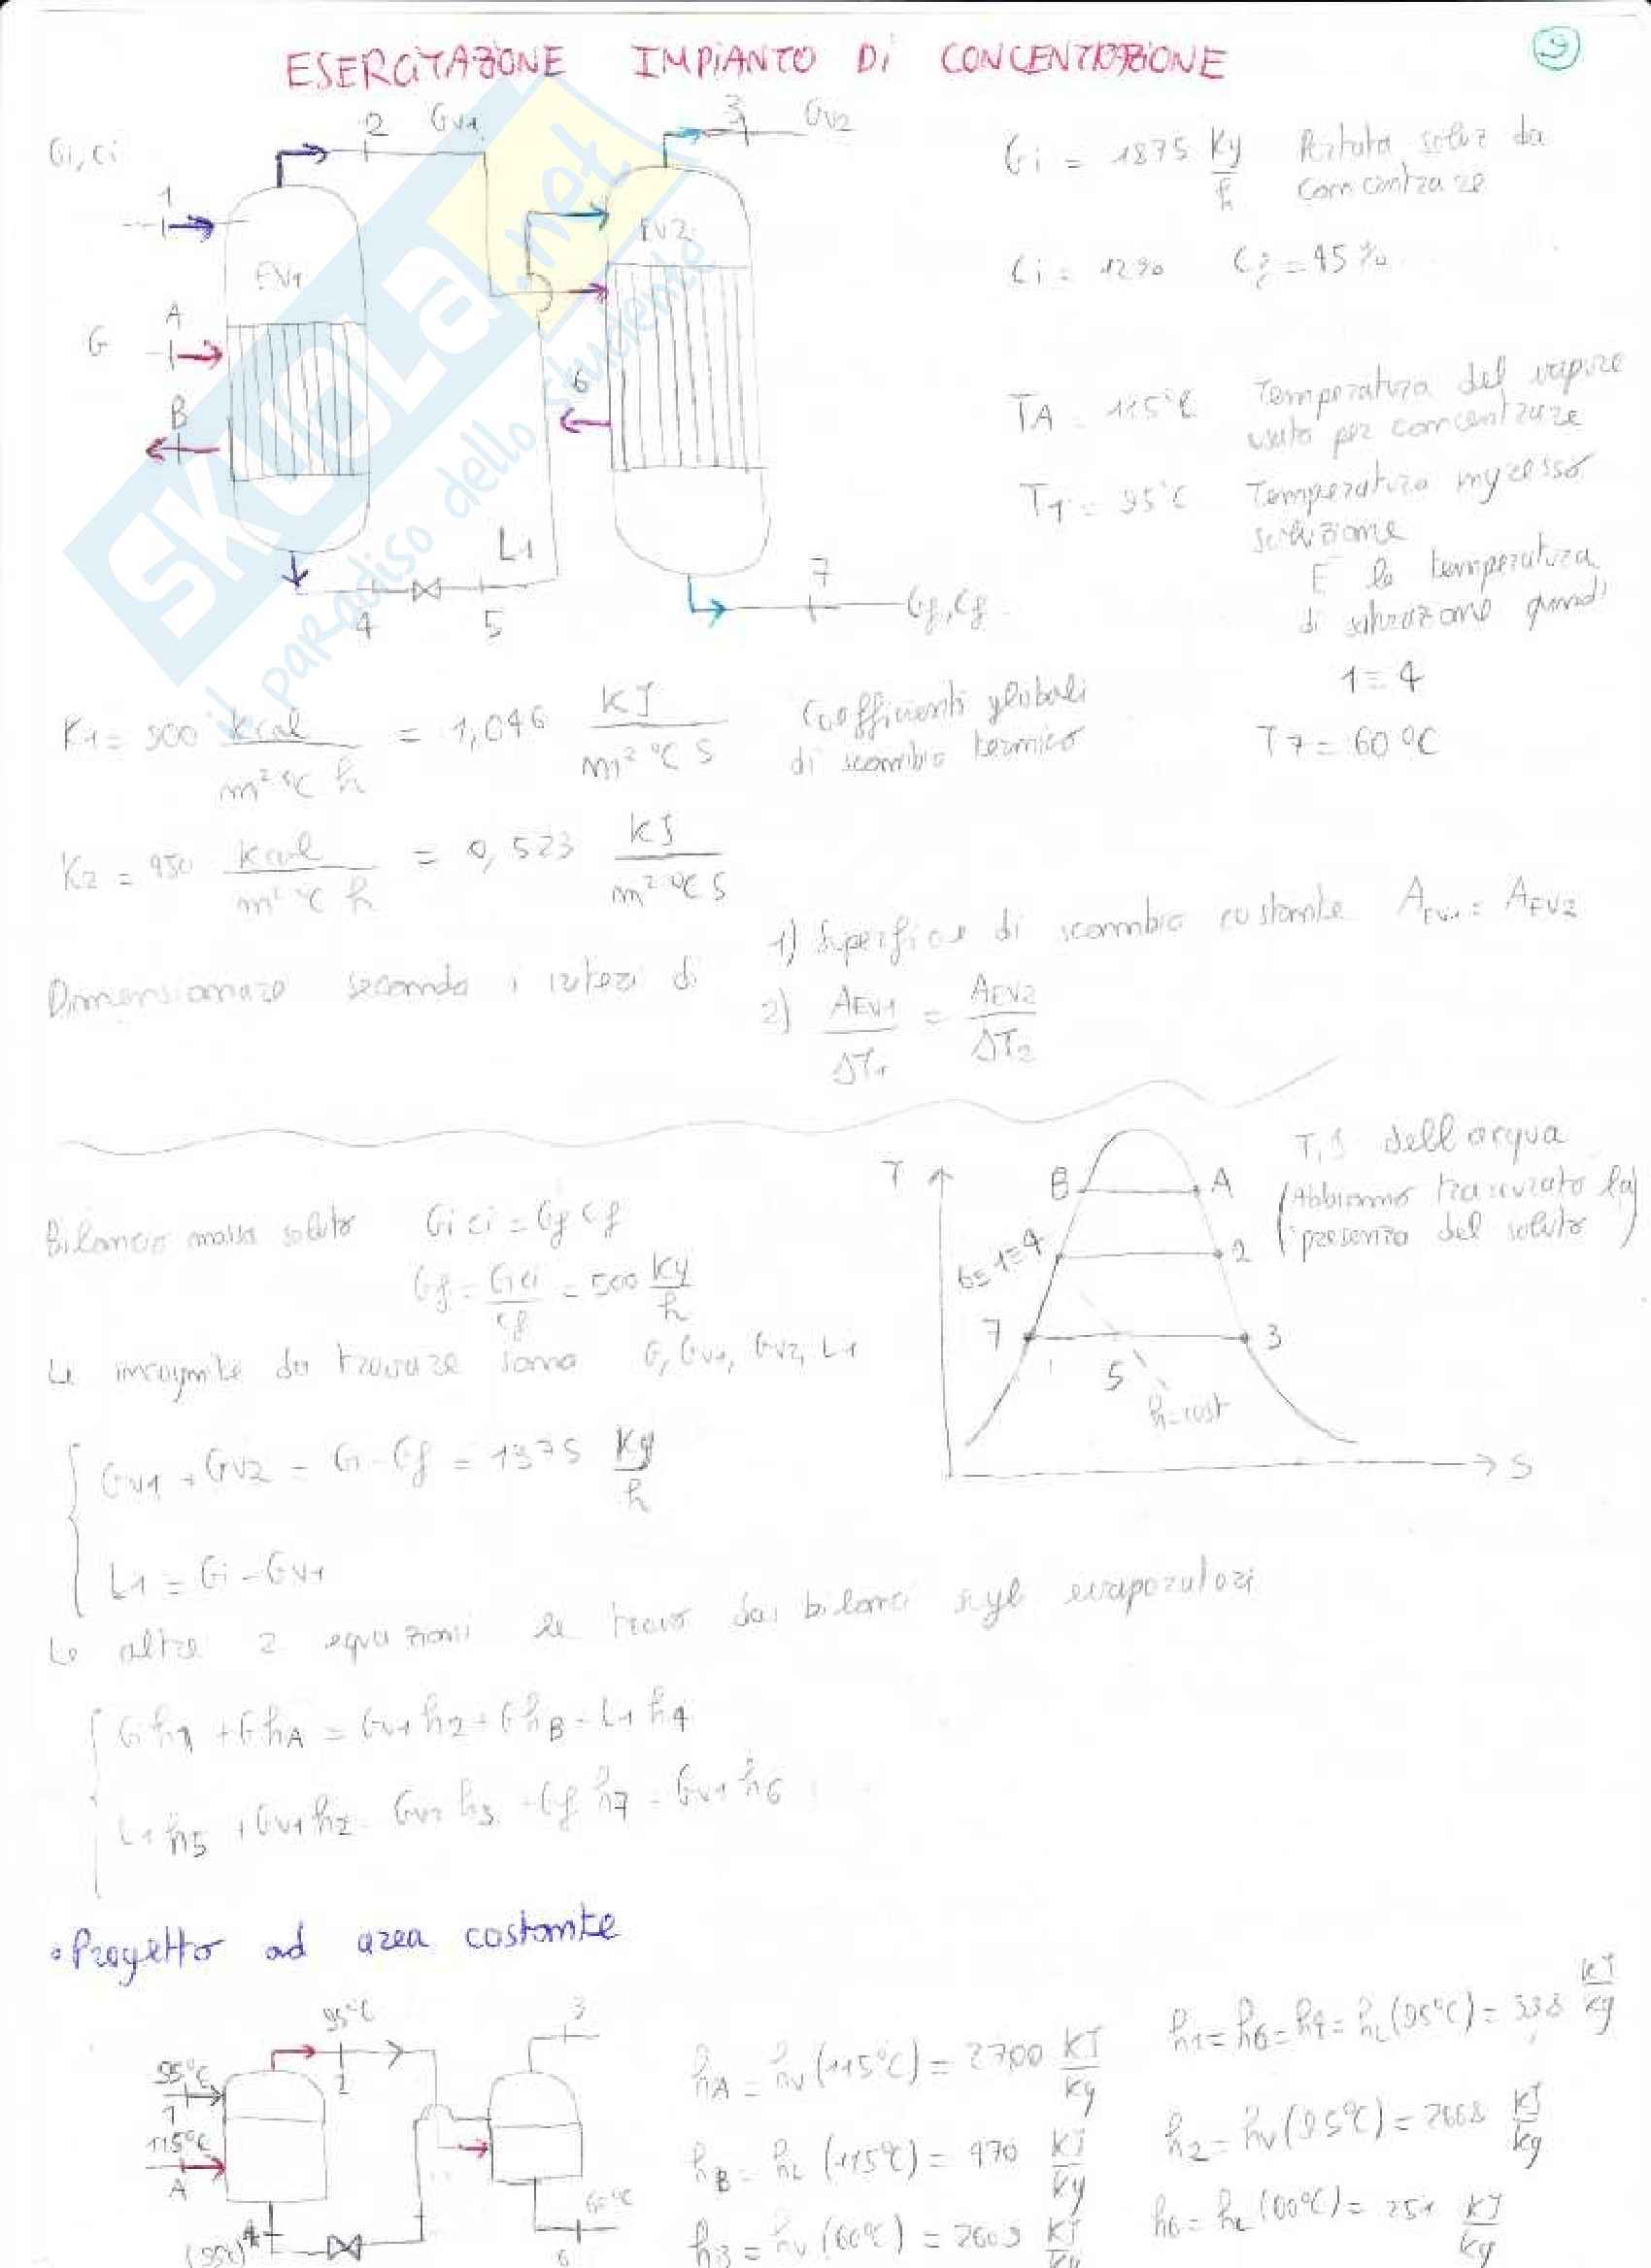 ESERCITAZIONE IMPIANTO Di CONCENTRAZIONE
9
Gi, ci
1
2
Gv1
3
Gv2
EV1
EV2
A
G
B
6
L1
4
5
7
Gf, Cf
SKUOLA.net
il paradiso dello studente
Gi = 1875 Kg/h Portata soluz da concentrare
Ci = 12% Cf = 45%
TA = 115°C Temperatura del vapore
usato per concentrare
T1 = 95°C Temperatura ingresso
soluzione
E la temperatura
di saturazione quindi
1 = 4
T7 = 60°C
K1 = 900 kcal/m² °C h = 1,046 KJ/m² °C S Coefficienti globali
di scambio termico
K2 = 450 kcal/m² °C h = 0,523 KJ/m² °C S
Dimensionare secondo i criteri di
1) Superficie di scambio costante AEV1 = AEV2
2) AEV1/ΔT1 = AEV2/ΔT2
T, S dell'acqua
(Abbiamo trascurato la
presenza del soluto)
T
B
A
6=1=4
2
7
3
5
h=cost
S
Bilancio massa soluto Gi ci = Gf cf
Gf = Gi ci/cf = 500 Kg/h
Le incognite da trovare sono G, Gv1, Gv2, L1
Gv1 + Gv2 = Gi - Gf = 1375 Kg/h
L1 = Gi - Gv1
Le altre 2 equazioni le trovo dai bilanci sugli evaporatori
G h1 + G hA = Gv1 h2 + G hB + L1 h4
L1 h5 + Gv1 h2 = Gv2 h3 + Gf h7 + Gv1 h6
• Progetto ad area costante
95°C
3
95°C
1
2
115°C
A
(95°C) 4
60°C
6
hA = hv (115°C) = 2700 KJ/kg
hB = hL (115°C) = 470 KJ/kg
h3 = hv (60°C) = 2609 KJ/kg
h1 = h6 = h4 = hL (95°C) = 398 KJ/kg
h2 = hv (95°C) = 2668 KJ/kg
h6 = hL (60°C) = 251 KJ/kg